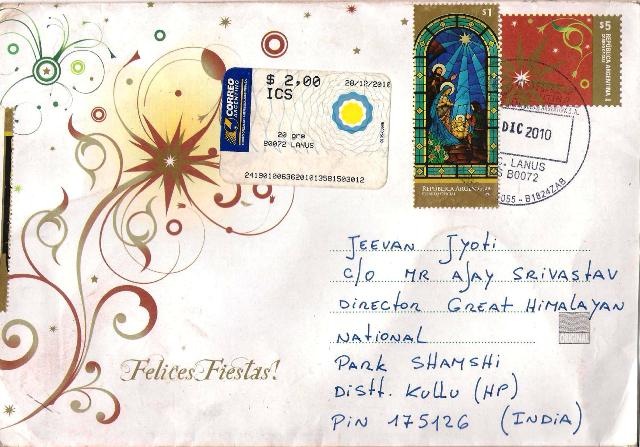 $ 2,00
28/12/2010
ICS
CORREO
ARGENTINO
20 grs
B0072 LANUS
24190100636201013581503012
$1
REPÚBLICA ARGENTINA
$5
REPÚBLICA ARGENTINA
DIC 2010
LANUS
B0072
B1824ZAB
Jeevan Jyoti
c/o MR AJAY SRIVASTAV
DIRECTOR GREAT HIMALAYAN
NATIONAL
PARK SHAMSHI
DISTT. KULLU (HP)
PIN 175126 (INDIA)
Felices Fiestas!